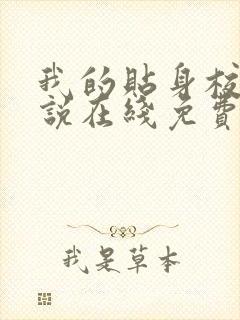 我的貼身校
說在綫免費
我是草本